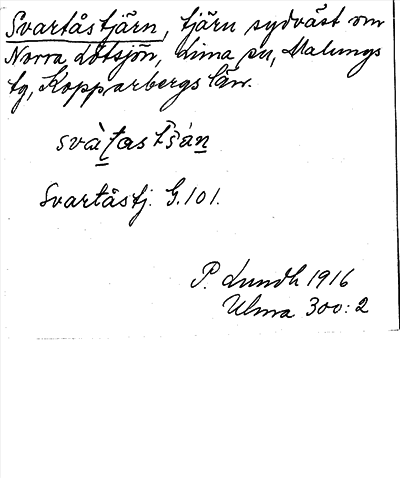 Svartåstjärn, tjärn sydväst om
Norra Lötsjön, Lima sn, Malungs
tg, Kopparbergs län.
svàt̲astšán̲
Svartåstj. G. 101.
P. Lundh 1916
Ulma 300:2